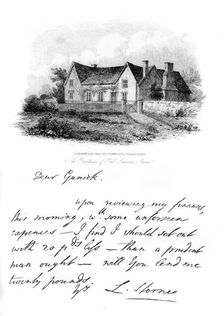 (The Residence of
Dear Garrick.
Upon reviewing my finances
this morning, wth some unforseen
expences — I find I should set out
with 20 pds less — than a prudent
man ought — will You lend me
twenty pounds.
L. Sterne